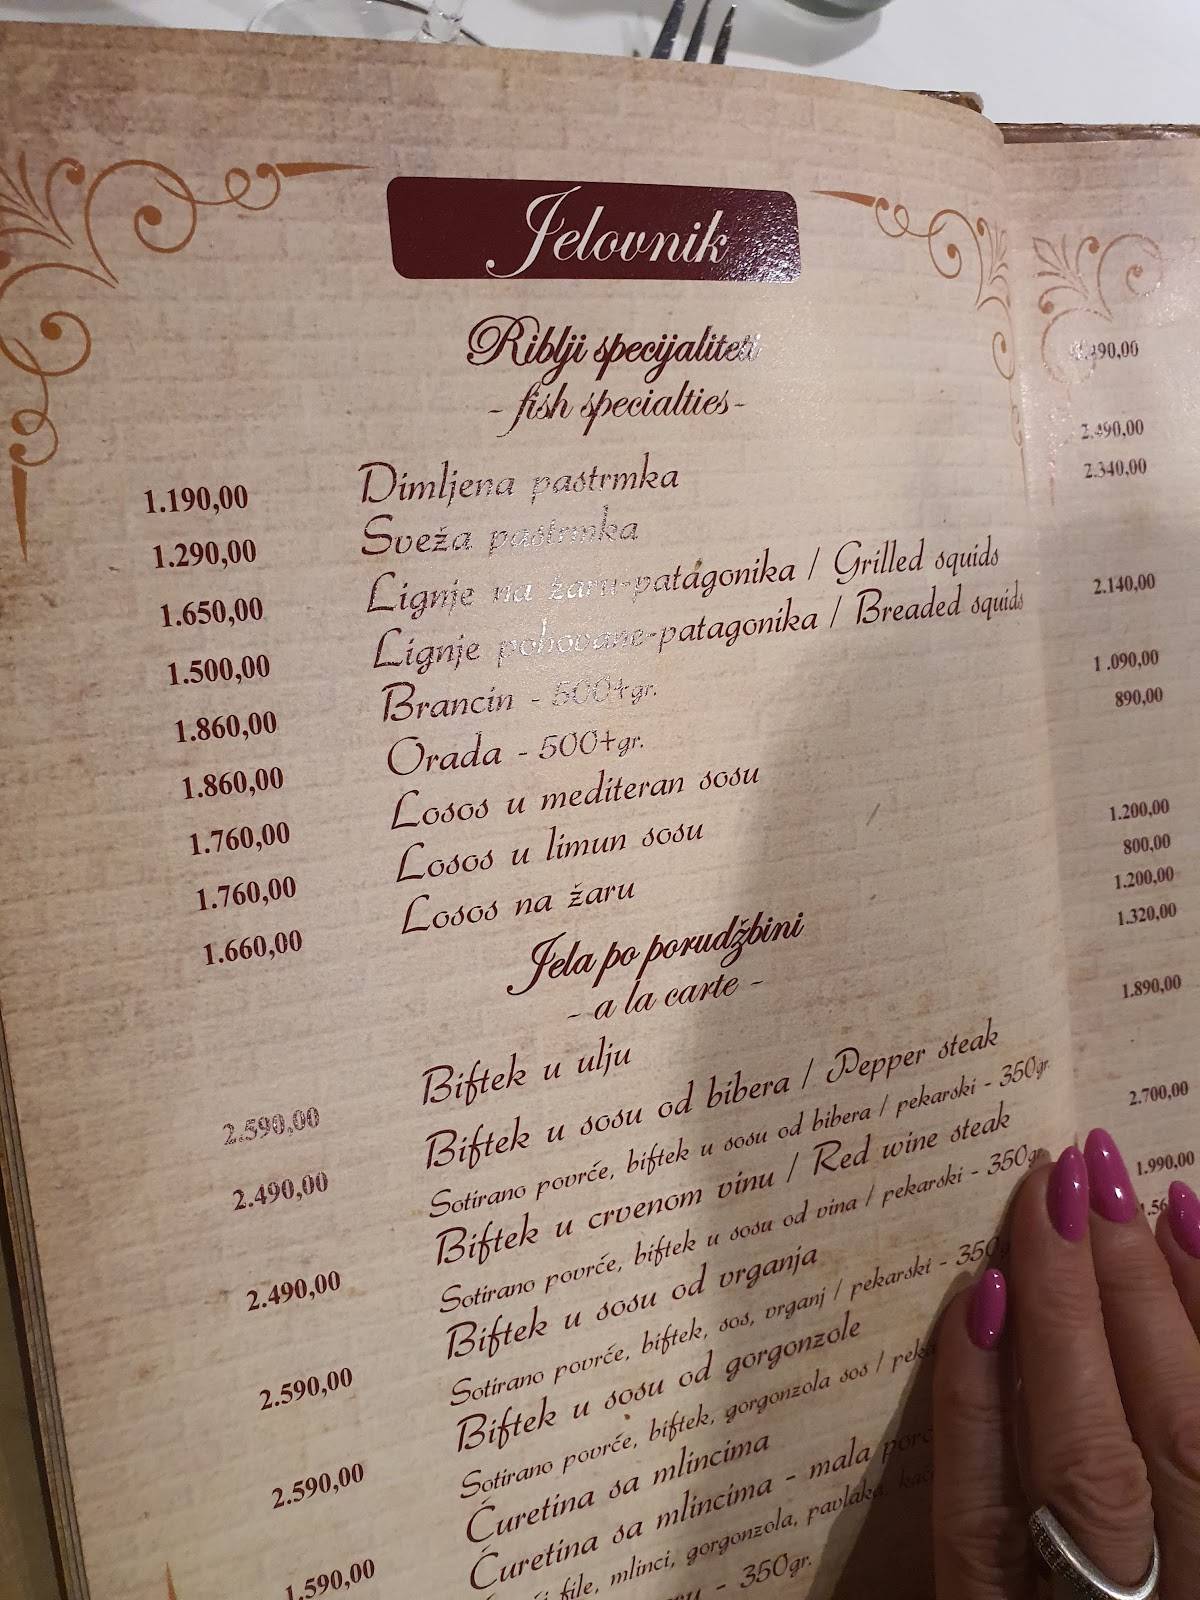 Jelovnik
Riblji specijaliteti
- fish specialties -
1.190,00 Dimljena pastrmka
1.290,00 Sveža pastrmka
1.650,00 Lignje na žaru-patagonika / Grilled squids
1.500,00 Lignje pohovane-patagonika / Breaded squids
1.860,00 Brancin - 500+gr.
1.860,00 Orada - 500+gr.
1.760,00 Losos u mediteran sosu
1.760,00 Losos u limun sosu
1.660,00 Losos na žaru
Jela po porudžbini
- a la carte -
2.590,00 Biftek u ulju
2.490,00 Biftek u sosu od bibera / Pepper steak
Sotirano povrće, biftek u sosu od bibera / pekarski - 350gr.
2.490,00 Biftek u crvenom vinu / Red wine steak
Sotirano povrće, biftek u sosu od vina / pekarski - 350gr.
2.590,00 Biftek u sosu od vrganja
Sotirano povrće, biftek, sos, vrganj / pekarski - 350
2.590,00 Biftek u sosu od gorgonzole
Sotirano povrće, biftek, gorgonzola sos /
1.590,00 Ćuretina sa mlincima
Ćuretina sa mlincima - mala
file, mlinci, gorgonzola, pavlaka,
- 350gr.
2.490,00
2.340,00
2.140,00
1.090,00
890,00
1.200,00
800,00
1.200,00
1.320,00
1.890,00
2.700,00
1.990,00